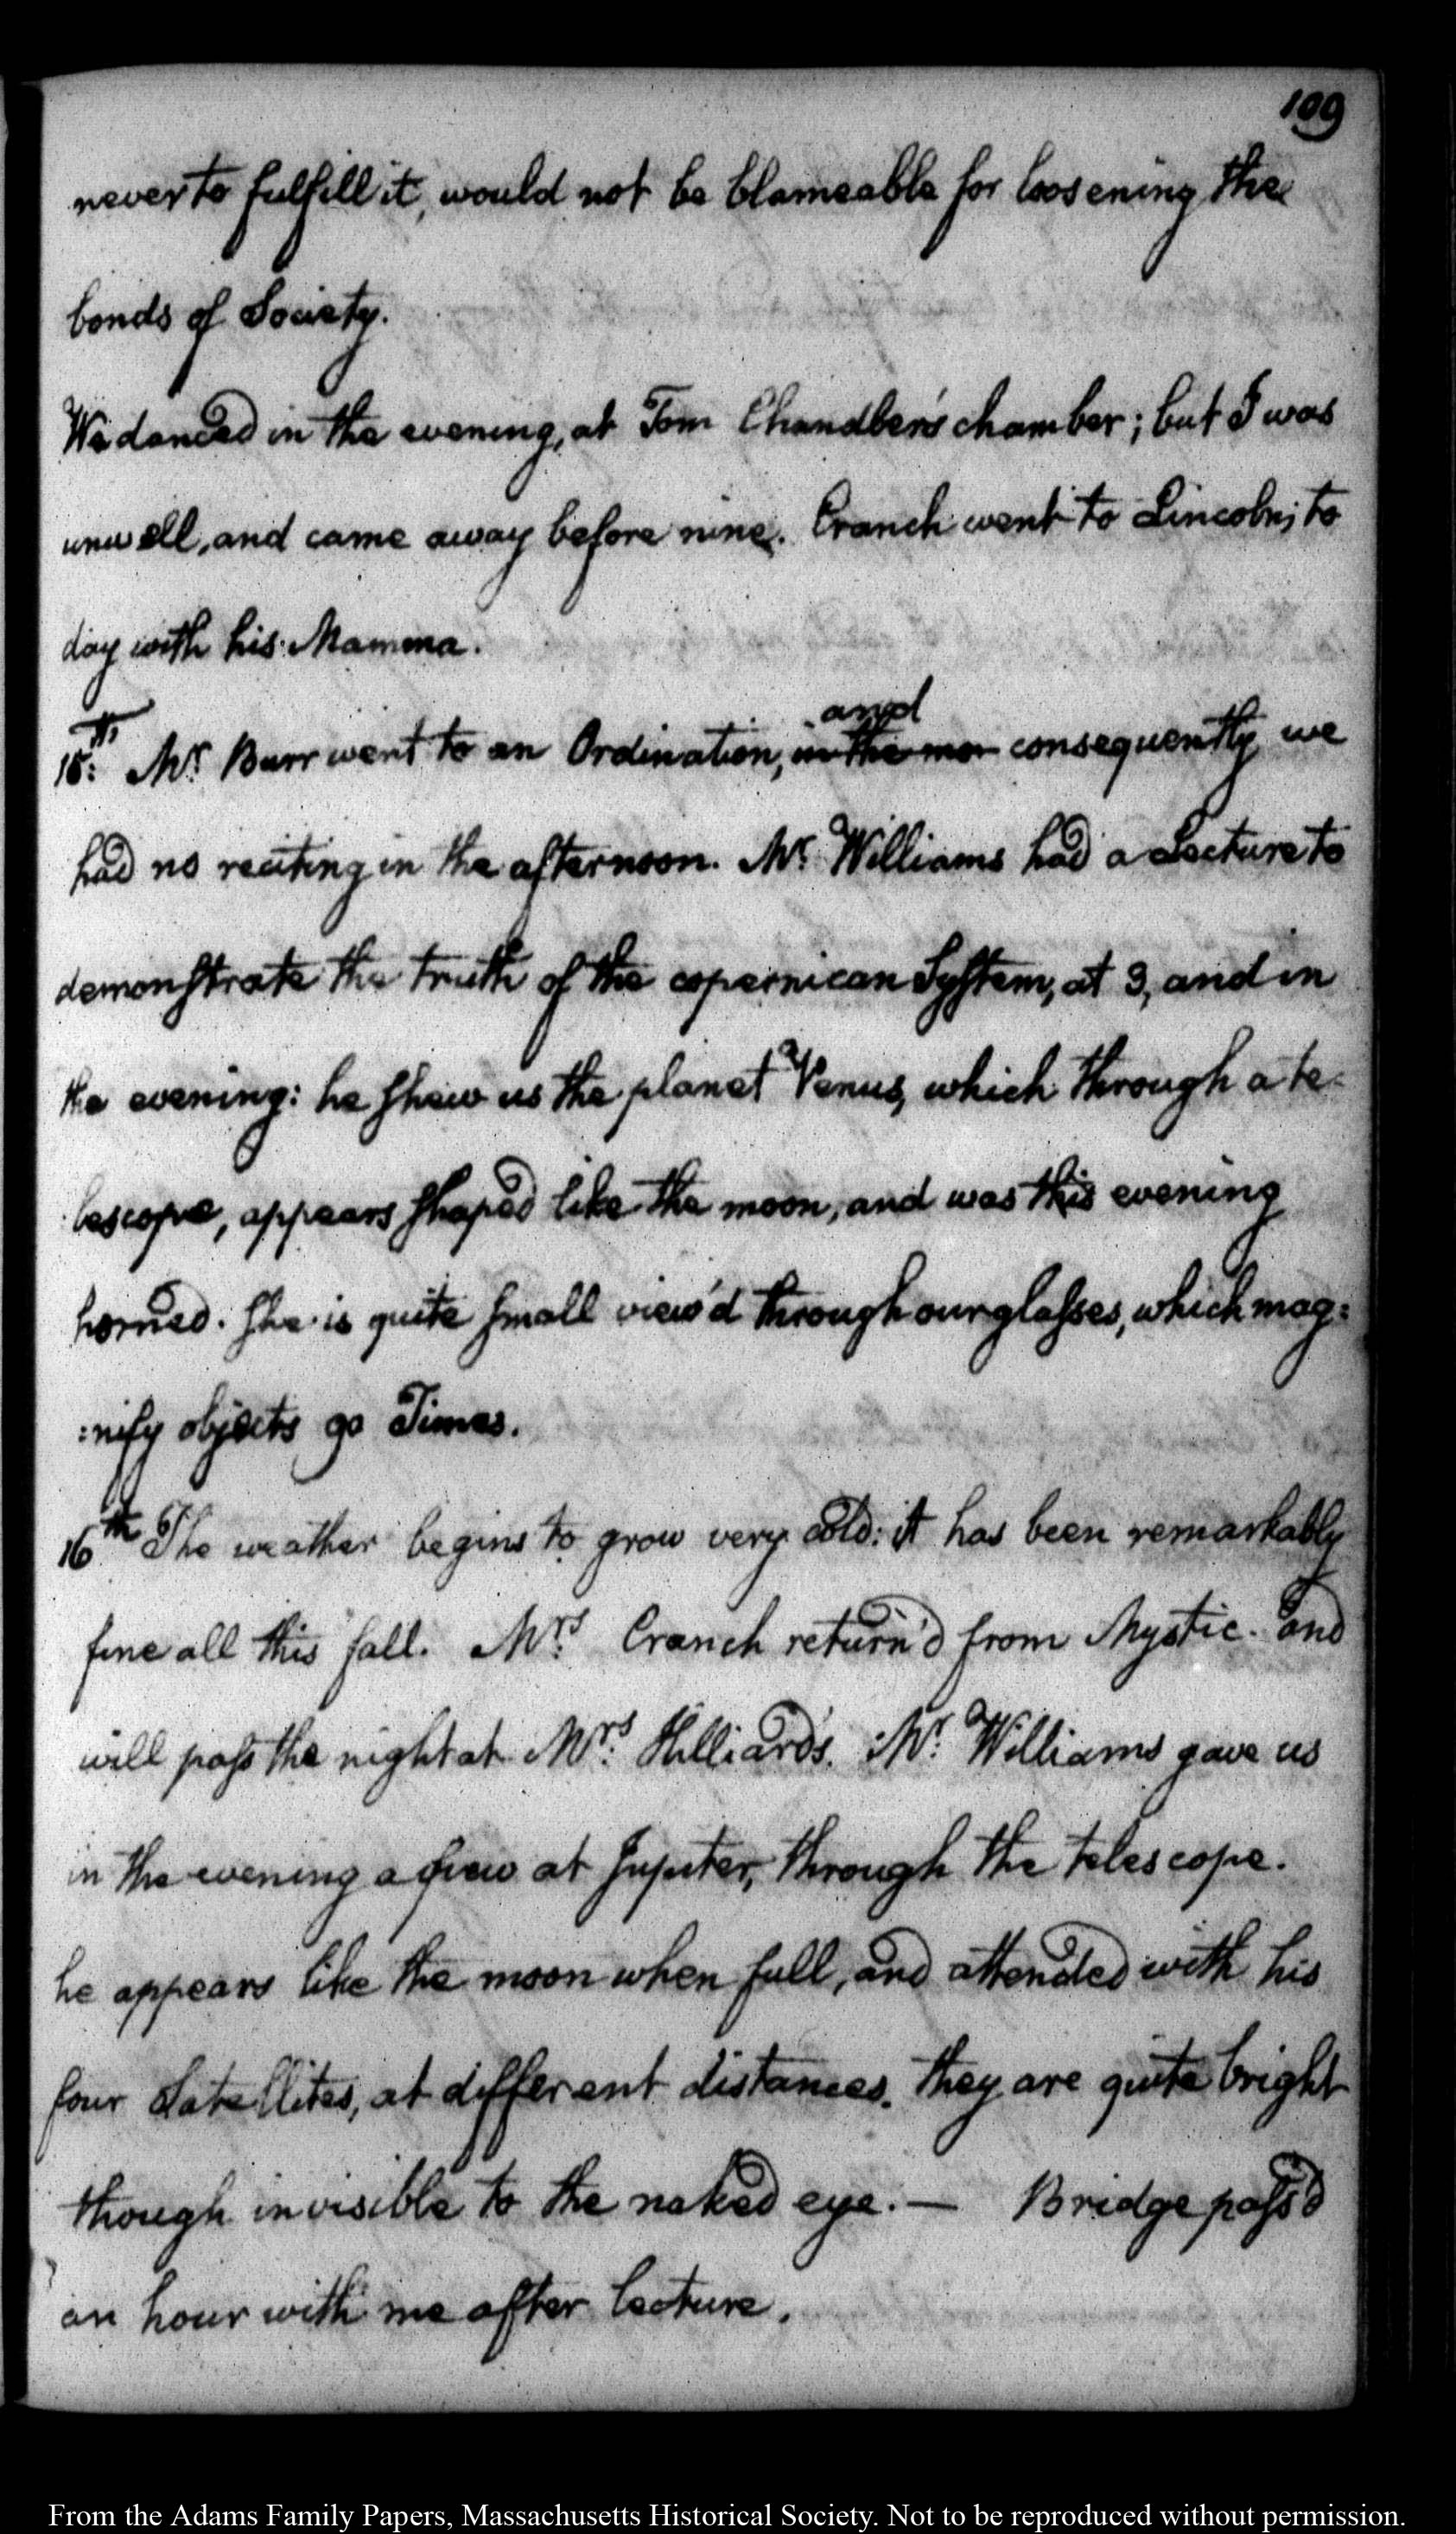 109
never to fulfill it, would not be blameable for loosening the
bonds of Society.
We danced in the evening, at Tom Chandler's chamber; but I was
unwell, and came away before nine. Cranch went to Lincoln, to
day with his Mamma.
and
15th: Mr. Burr went to an Ordination, in the mor consequently we
had no reciting in the afternoon. Mr. Williams had a Lecture to
demonstrate the truth of the copernican System, at 3, and in
the evening: he shew us the planet Venus, which through a te-
lescope, appears shaped like the moon, and was this evening
horned. She is quite small view'd through our glasses, which mag:
:nify objects 90 Times.
16th The weather begins to grow very cold: it has been remarkably
fine all this fall. Mrs. Cranch return'd from Mystic. and
will pass the night at Mrs. Hilliard's. Mr. Williams gave us
in the evening a view at Jupiter, through the telescope.
he appears like the moon when full, and attended with his
four Satellites, at different distances. they are quite bright
though invisible to the naked eye. — Bridge pass'd
an hour with me after lecture.
From the Adams Family Papers, Massachusetts Historical Society. Not to be reproduced without permission.